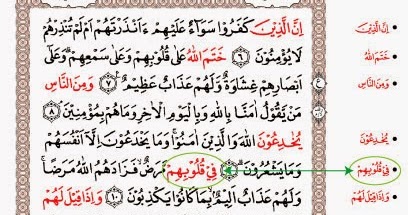 اِنَّ الَّذٖينَ كَفَرُوا سَوَٓاءٌ عَلَيْهِمْ ءَاَنْذَرْتَهُمْ اَمْ لَمْ تُنْذِرْهُمْ
لَا يُؤْمِنُونَ ﴿٦﴾ خَتَمَ اللّٰهُ عَلٰى قُلُوبِهِمْ وَعَلٰى سَمْعِهِمْ وَعَلٰٓى
اَبْصَارِهِمْ غِشَاوَةٌ وَلَهُمْ عَذَابٌ عَظٖيمٌ ﴿٧﴾ وَمِنَ النَّاسِ
مَنْ يَقُولُ اٰمَنَّا بِاللّٰهِ وَبِالْيَوْمِ الْاٰخِرِ وَمَا هُمْ بِمُؤْمِنٖينَ ﴿٨﴾
يُخَادِعُونَ اللّٰهَ وَالَّذٖينَ اٰمَنُوا وَمَا يَخْدَعُونَ اِلَّٓا اَنْفُسَهُمْ
وَمَا يَشْعُرُونَ ﴿٩﴾ فٖي قُلُوبِهِمْ مَرَضٌ فَزَادَهُمُ اللّٰهُ مَرَضًا
وَلَهُمْ عَذَابٌ اَلٖيمٌ بِمَا كَانُوا يَكْذِبُونَ ﴿١٠﴾ وَاِذَا قٖيلَ لَهُمْ
اِنَّ الَّذٖينَ
خَتَمَ اللّٰهُ
وَمِنَ النَّاسِ
يُخَادِعُونَ
فٖي قُلُوبِهِمْ
وَاِذَا قٖيلَ لَهُمْ